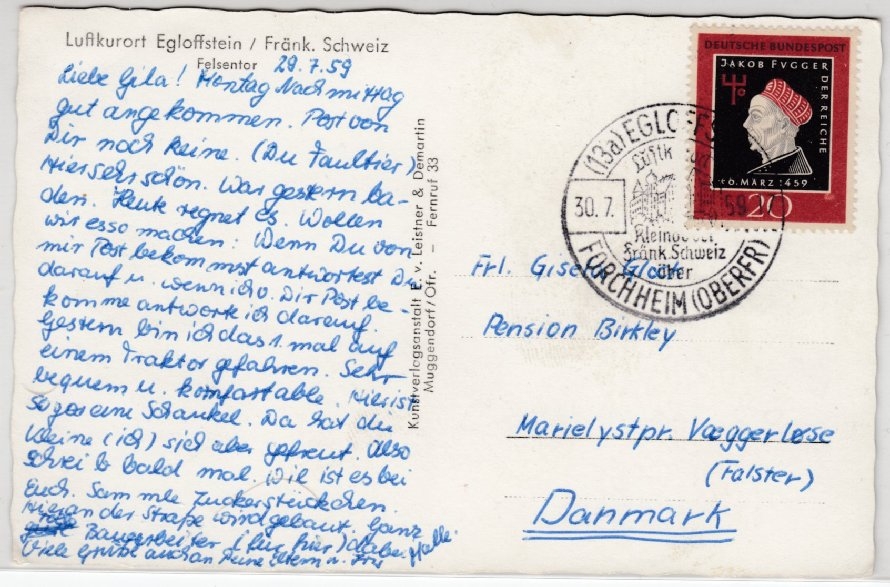 Luftkurort Egloffstein / Fränk. Schweiz
Felsentor 29.7.59
Liebe Gila! Montag Nachmittag
gut angekommen. Post von
Dir noch keine. (Du Faultier)
Hier sehr schön. War gestern ba-
den. Heute regnet es. Wollen
wir es so machen: Wenn Du von
mir Post bekommst antwortest Du
darauf u. wenn ich v. Dir Post be-
komme antworte ich darauf.
Gestern bin ich das 1. mal auf
einem Traktor gefahren. Sehr
bequem u. komfortable. Hier ist
sogar eine Schaukel. Da hat die
Kleine (ich) sich aber gefreut. Also
schreib bald mal. Wie ist es bei
Euch. Sammle Zuckerstückchen.
Hier an der Straße wird gebaut. Ganz
Bauarbeiter (für hier) dabei.
Viele Grüße auch an Deine Eltern u.
Kunstverlagsanstalt E. v. Leistner & Demartin
Muggendorf/Ofr. – Fernruf 33
DEUTSCHE BUNDESPOST
JAKOB FVGGER
DER REICHE
+6. MÄRZ 1459
20
(13a) EGLOFFS
Luftk
30.7. 59
Fränk. Schweiz
über
FORCHHEIM (OBERFR)
Frl. Gisela
Pension Birkley
Marielystpr. Væggerløse
(Falster)
Danmark